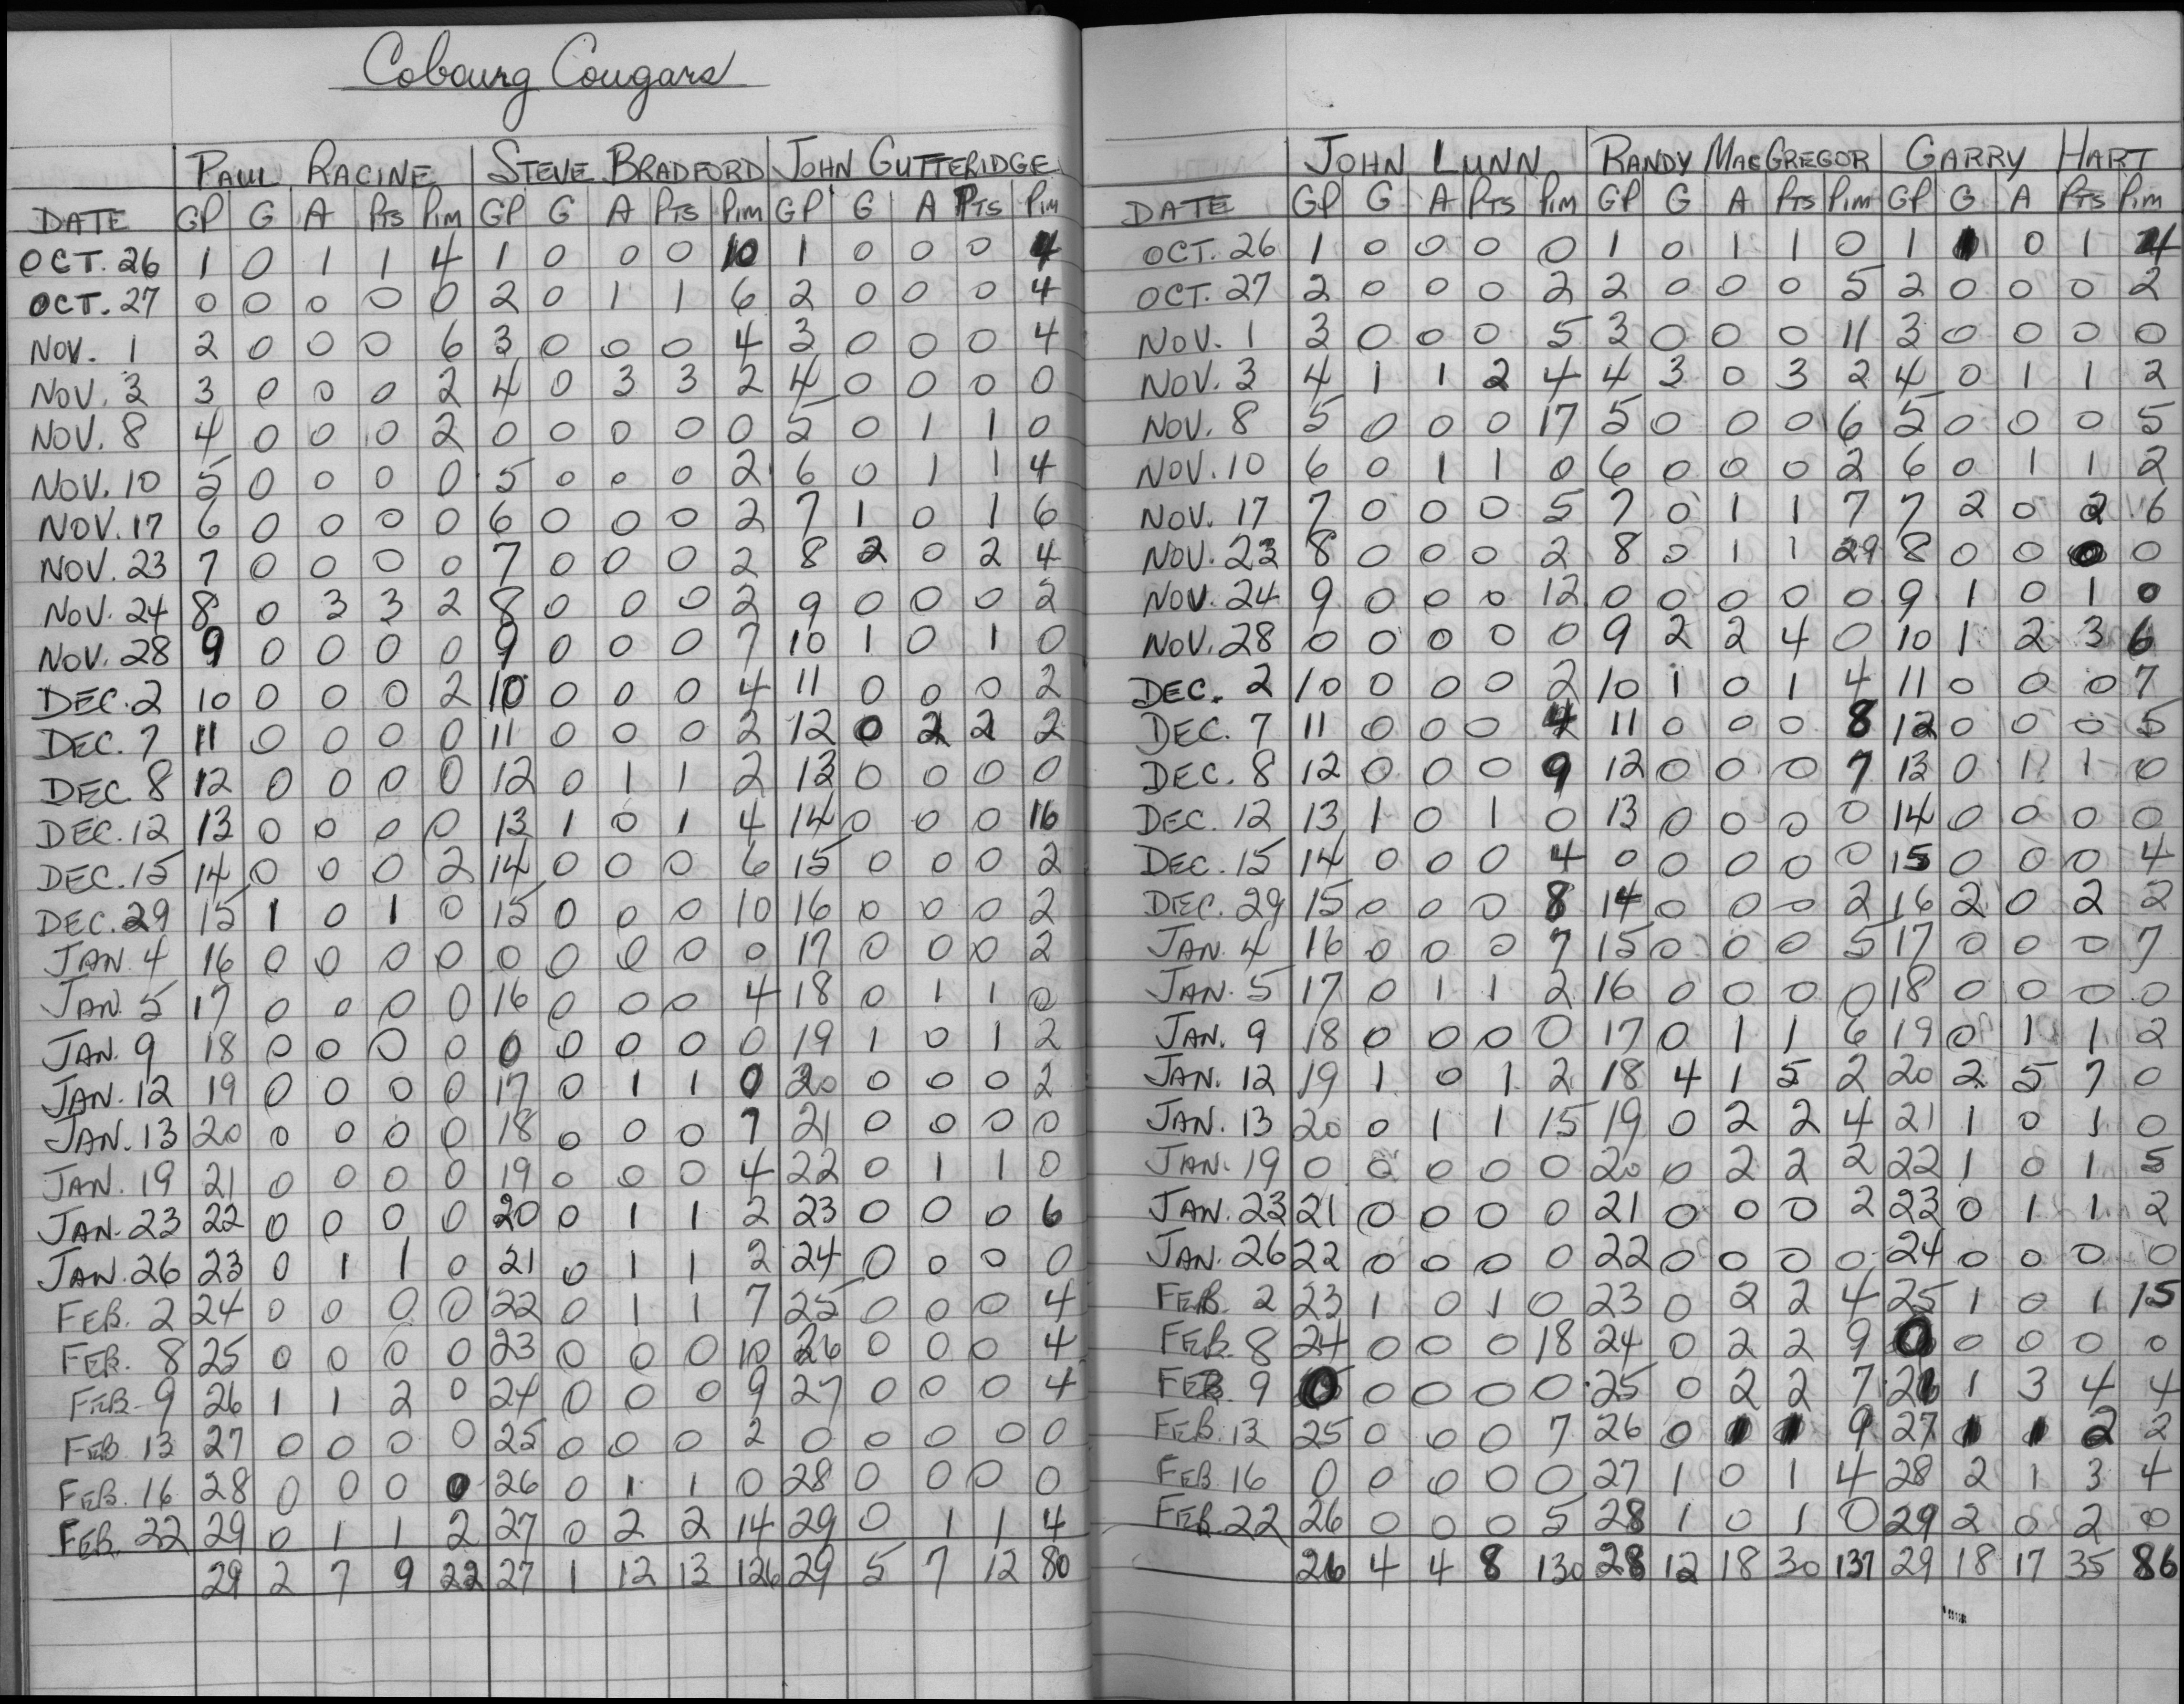 Cobourg Cougars
PAUL RACINE STEVE BRADFORD JOHN GUTTERIDGE
DATE GP G A PTS PIM GP G A PTS PIM GP G A PTS PIM
OCT. 26 1 0 1 1 4 1 0 0 0 10 1 0 0 0 4
OCT. 27 0 0 0 0 0 2 0 1 1 6 2 0 0 0 4
NOV. 1 2 0 0 0 6 3 0 0 0 4 3 0 0 0 4
NOV. 3 3 0 0 0 2 4 0 3 3 2 4 0 0 0 0
NOV. 8 4 0 0 0 2 0 0 0 0 0 5 0 1 1 0
NOV. 10 5 0 0 0 0 5 0 0 0 2 6 0 1 1 4
NOV. 17 6 0 0 0 0 6 0 0 0 2 7 1 0 1 6
NOV. 23 7 0 0 0 0 7 0 0 0 2 8 2 0 2 4
NOV. 24 8 0 3 3 2 8 0 0 0 2 9 0 0 0 2
NOV. 28 9 0 0 0 0 9 0 0 0 7 10 1 0 1 0
DEC. 2 10 0 0 0 2 10 0 0 0 4 11 0 0 0 2
DEC. 7 11 0 0 0 0 11 0 0 0 2 12 0 2 2 2
DEC 8 12 0 0 0 0 12 0 1 1 2 13 0 0 0 0
DEC. 12 13 0 0 0 0 13 1 0 1 4 14 0 0 0 16
DEC. 15 14 0 0 0 2 14 0 0 0 6 15 0 0 0 2
DEC. 29 15 1 0 1 0 15 0 0 0 10 16 0 0 0 2
JAN. 4 16 0 0 0 0 0 0 0 0 0 17 0 0 0 2
JAN. 5 17 0 0 0 0 16 0 0 0 4 18 0 1 1 0
JAN. 9 18 0 0 0 0 0 0 0 0 0 19 1 0 1 2
JAN. 12 19 0 0 0 0 17 0 1 1 0 20 0 0 0 2
JAN. 13 20 0 0 0 0 18 0 0 0 7 21 0 0 0 0
JAN. 19 21 0 0 0 0 19 0 0 0 4 22 0 1 1 0
JAN. 23 22 0 0 0 0 20 0 1 1 2 23 0 0 0 6
JAN. 26 23 0 1 1 0 21 0 1 1 2 24 0 0 0 0
FEB. 2 24 0 0 0 0 22 0 1 1 7 25 0 0 0 4
FEB. 8 25 0 0 0 0 23 0 0 0 10 26 0 0 0 4
FEB. 9 26 1 1 2 0 24 0 0 0 9 27 0 0 0 4
FEB 13 27 0 0 0 0 25 0 0 0 2 0 0 0 0 0
FEB. 16 28 0 0 0 0 26 0 1 1 0 28 0 0 0 0
FEB. 22 29 0 1 1 2 27 0 2 2 14 29 0 1 1 4
29 2 7 9 22 27 1 12 13 126 29 5 7 12 80
JOHN LUNN RANDY MACGREGOR GARRY HART
DATE GP G A PTS PIM GP G A PTS PIM GP G A PTS PIM
OCT. 26 1 0 0 0 0 1 0 1 1 0 1 1 0 1 4
OCT. 27 2 0 0 0 2 2 0 0 0 5 2 0 0 0 2
NOV. 1 3 0 0 0 5 3 0 0 0 11 3 0 0 0 0
NOV. 3 4 1 1 2 4 4 3 0 3 2 4 0 1 1 2
NOV. 8 5 0 0 0 17 5 0 0 0 6 5 0 0 0 5
NOV. 10 6 0 1 1 0 6 0 0 0 2 6 0 1 1 2
NOV. 17 7 0 0 0 5 7 0 1 1 7 7 2 0 2 6
NOV. 23 8 0 0 0 2 8 0 1 1 29 8 0 0 0 0
NOV. 24 9 0 0 0 12 0 0 0 0 0 9 1 0 1 0
NOV. 28 0 0 0 0 0 9 2 2 4 0 10 1 2 3 6
DEC. 2 10 0 0 0 2 10 1 0 1 4 11 0 0 0 7
DEC. 7 11 0 0 0 4 11 0 0 0 8 12 0 0 0 5
DEC. 8 12 0 0 0 9 12 0 0 0 7 13 0 1 1 0
DEC. 12 13 1 0 1 0 13 0 0 0 0 14 0 0 0 0
DEC. 15 14 0 0 0 4 0 0 0 0 0 15 0 0 0 4
DEC. 29 15 0 0 0 8 14 0 0 0 2 16 2 0 2 2
JAN. 4 16 0 0 0 7 15 0 0 0 5 17 0 0 0 7
JAN. 5 17 0 1 1 2 16 0 0 0 0 18 0 0 0 0
JAN. 9 18 0 0 0 0 17 0 1 1 6 19 0 1 1 2
JAN. 12 19 1 0 1 2 18 4 1 5 2 20 2 5 7 0
JAN. 13 20 0 1 1 15 19 0 2 2 4 21 1 0 1 0
JAN. 19 0 0 0 0 0 20 0 2 2 2 22 1 0 1 5
JAN. 23 21 0 0 0 0 21 0 0 0 2 23 0 1 1 2
JAN. 26 22 0 0 0 0 22 0 0 0 0 24 0 0 0 0
FEB. 2 23 1 0 1 0 23 0 2 2 4 25 1 0 1 15
FEB. 8 24 0 0 0 18 24 0 2 2 9 0 0 0 0 0
FEB. 9 0 0 0 0 0 25 0 2 2 7 26 1 3 4 4
FEB. 13 25 0 0 0 7 26 0 1 1 9 27 1 1 2 2
FEB. 16 0 0 0 0 0 27 1 0 1 4 28 2 1 3 4
FEB. 22 26 0 0 0 5 28 1 0 1 0 29 2 0 2 0
26 4 4 8 130 28 12 18 30 137 29 18 17 35 86